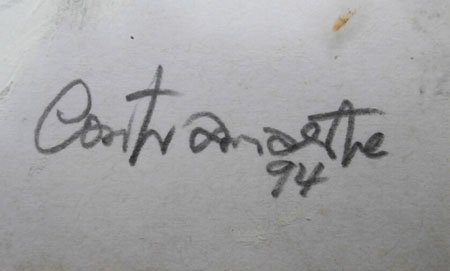 Contramaestre
94